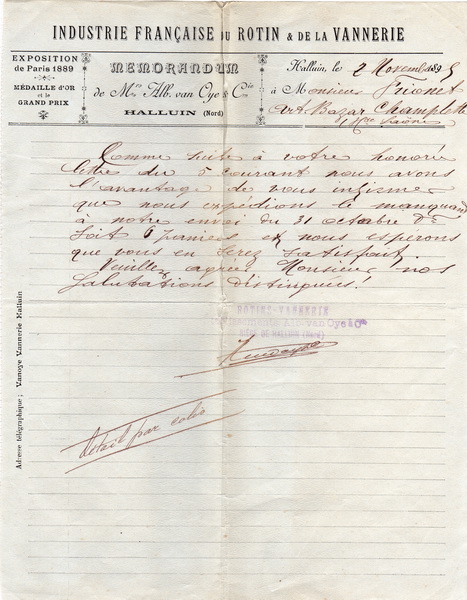 INDUSTRIE FRANÇAISE DU ROTIN & DE LA VANNERIE
EXPOSITION
de Paris 1889
MÉDAILLE D'OR
et le
GRAND PRIX
MEMORANDUM
de Mrs Alb. van Oye & Cie
HALLUIN (Nord)
Halluin, le 2 Novembre 1895
à Monsieur
Art. Bazar Champlitte
Hte Saône
Comme suite à votre honorée
lettre du 5 courant nous avons
l'avantage de vous informer
que nous expédions le manquant
à notre envoi du 31 octobre
soit 6 paniers et nous espérons
que vous en serez satisfait.
Veuillez agréer Monsieur nos
salutations distinguées!
ROTINS-VANNERIE
Etablissements Alb-van Oye & Cie
SIÈGE DE HALLUIN (Nord)
détail par colis
Adresse télégraphique; Vanoye Vannerie Halluin